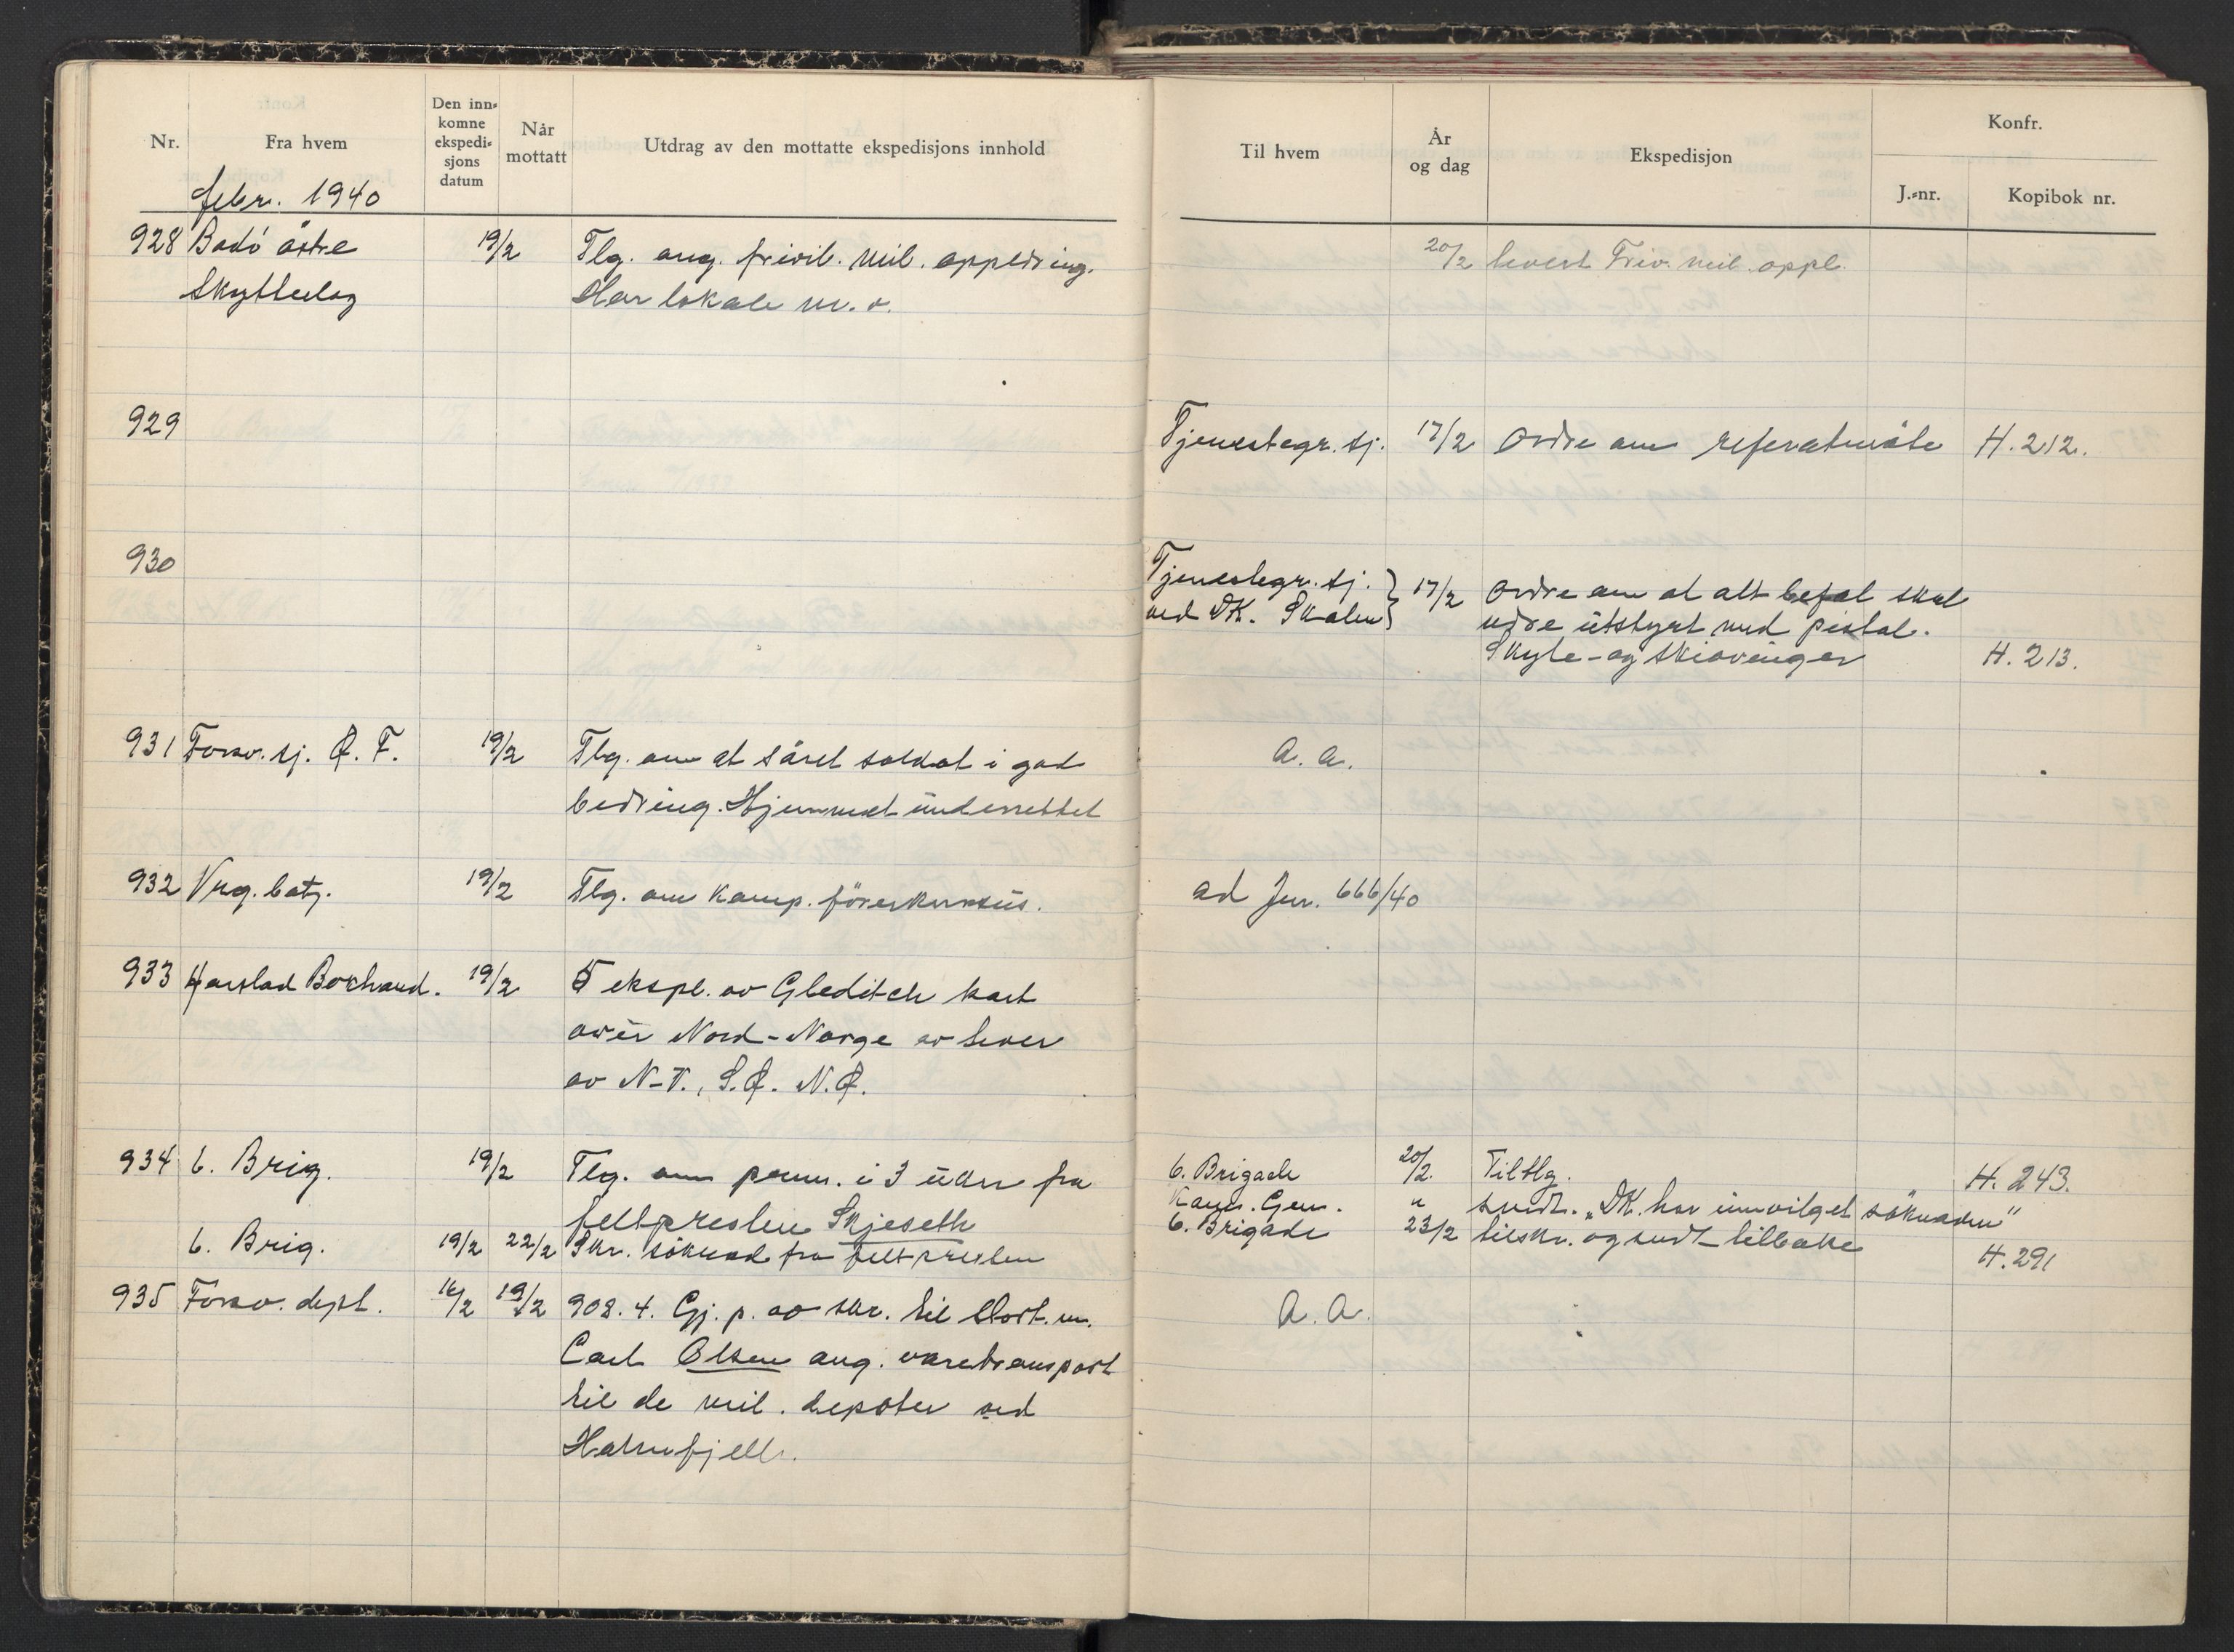 Nr.
Fra hvem
Den inn-
komne
ekspedi-
sjons
datum
Når
mottatt
Utdrag av den mottatte ekspedisjons innhold
febr. 1940
928 Bodö östre 19/2 Tlg. ang. frivil. mil. oppldring.
Skytterlag Har lokale m.v.
929
930
931 Forsv. sj. Ø. F. 19/2 Tlg. om at såret soldat i god
bedring. Hjemmet underrettet
932 Vrg. batj. 19/2 Tlg. om Kamp. förerkursus.
933 Harstad Bokhand. 19/2 5 ekspl. av Gleditch kart
over Nord-Norge av
av N-T., S.H. N.H.
934 6. Brig. 19/2 Tlg. om perm. i 3 uker fra
feltpresten Skjeseth
6. Brig. 19/2 22/2 Skr. söknad fra feltpresten
935 Forsv. dept. 16/2 19/2 908. 4. Gj. p. av skr. til Stort. m.
Carl Olsen ang. varetransport
til de mil. depoter ved
Hatnfjell.
Til hvem
År
og dag
Ekspedisjon
Konfr.
J.-nr.
Kopibok nr.
20/2 levert Friv. mil. oppl.
Tjenestegr. sj. 17/2 Ordre om referatmöte H. 212.
Tjenestegr. sj. 17/2 Ordre om at alt befal skal
ved DK. Skolen være utstyrt med pistol.
Skyte- og skiövinger H. 213.
a. a.
ad Jnr. 666/40
6. Brigade 20/2. Tiltlg. H. 243.
Gen. " sendt. „DK. har innvilget söknaden"
6. Brigade 23/2 tilskr. og sendt tilbake H. 291
A. A.